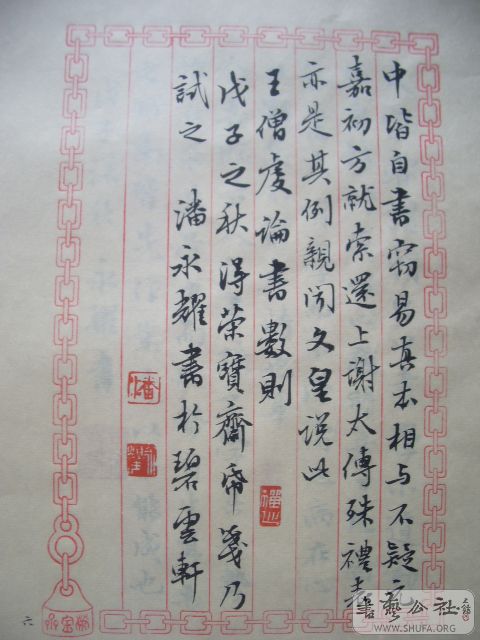 中皆自書窃易真本相与不疑元
嘉初方就索還上謝太傅殊禮表
亦是其例親聞文皇說此
王僧虔論書數則
戊子之秋得荣寶齋帋箋乃
試之 潘永耀書於碧雲軒
潘
六
書藝公社
WWW.SHUFA.ORG